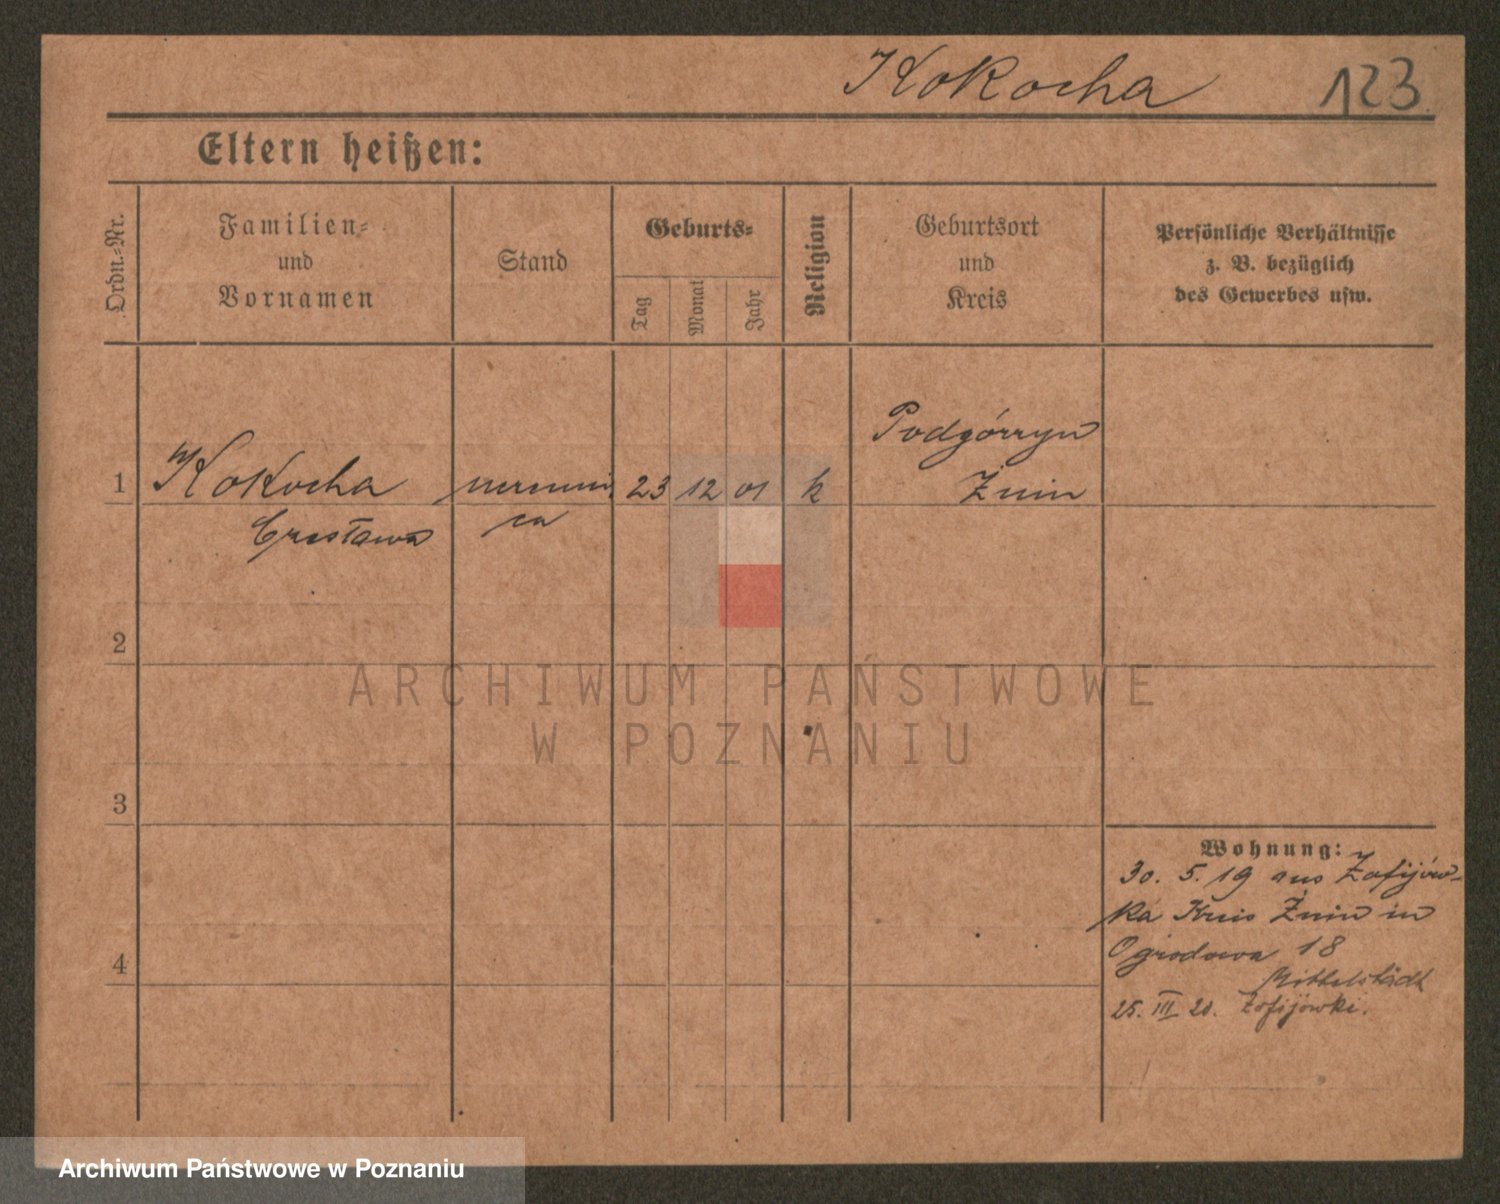 Kokocha 123
Eltern heißen:
Ordn.-Nr.
Familien-
und
Vornamen
Stand
Geburts-
Tag
Monat
Jahr
Religion
Geburtsort
und
Kreis
Persönliche Verhältnisse
z. B. bezüglich
des Gewerbes usw.
Podgórzyn
1 Kokocha uczenni 23 12 01 k Żnin
Czesława ca
2
ARCHIWUM PAŃSTWOWE
W POZNANIU
3
Wohnung:
30. 5. 19 aus Zofijów-
ka Kreis Żnin in
4 Ogrodowa 18
Mittelstädt
25. III 20. Zofijówki.
Archiwum Państwowe w Poznaniu